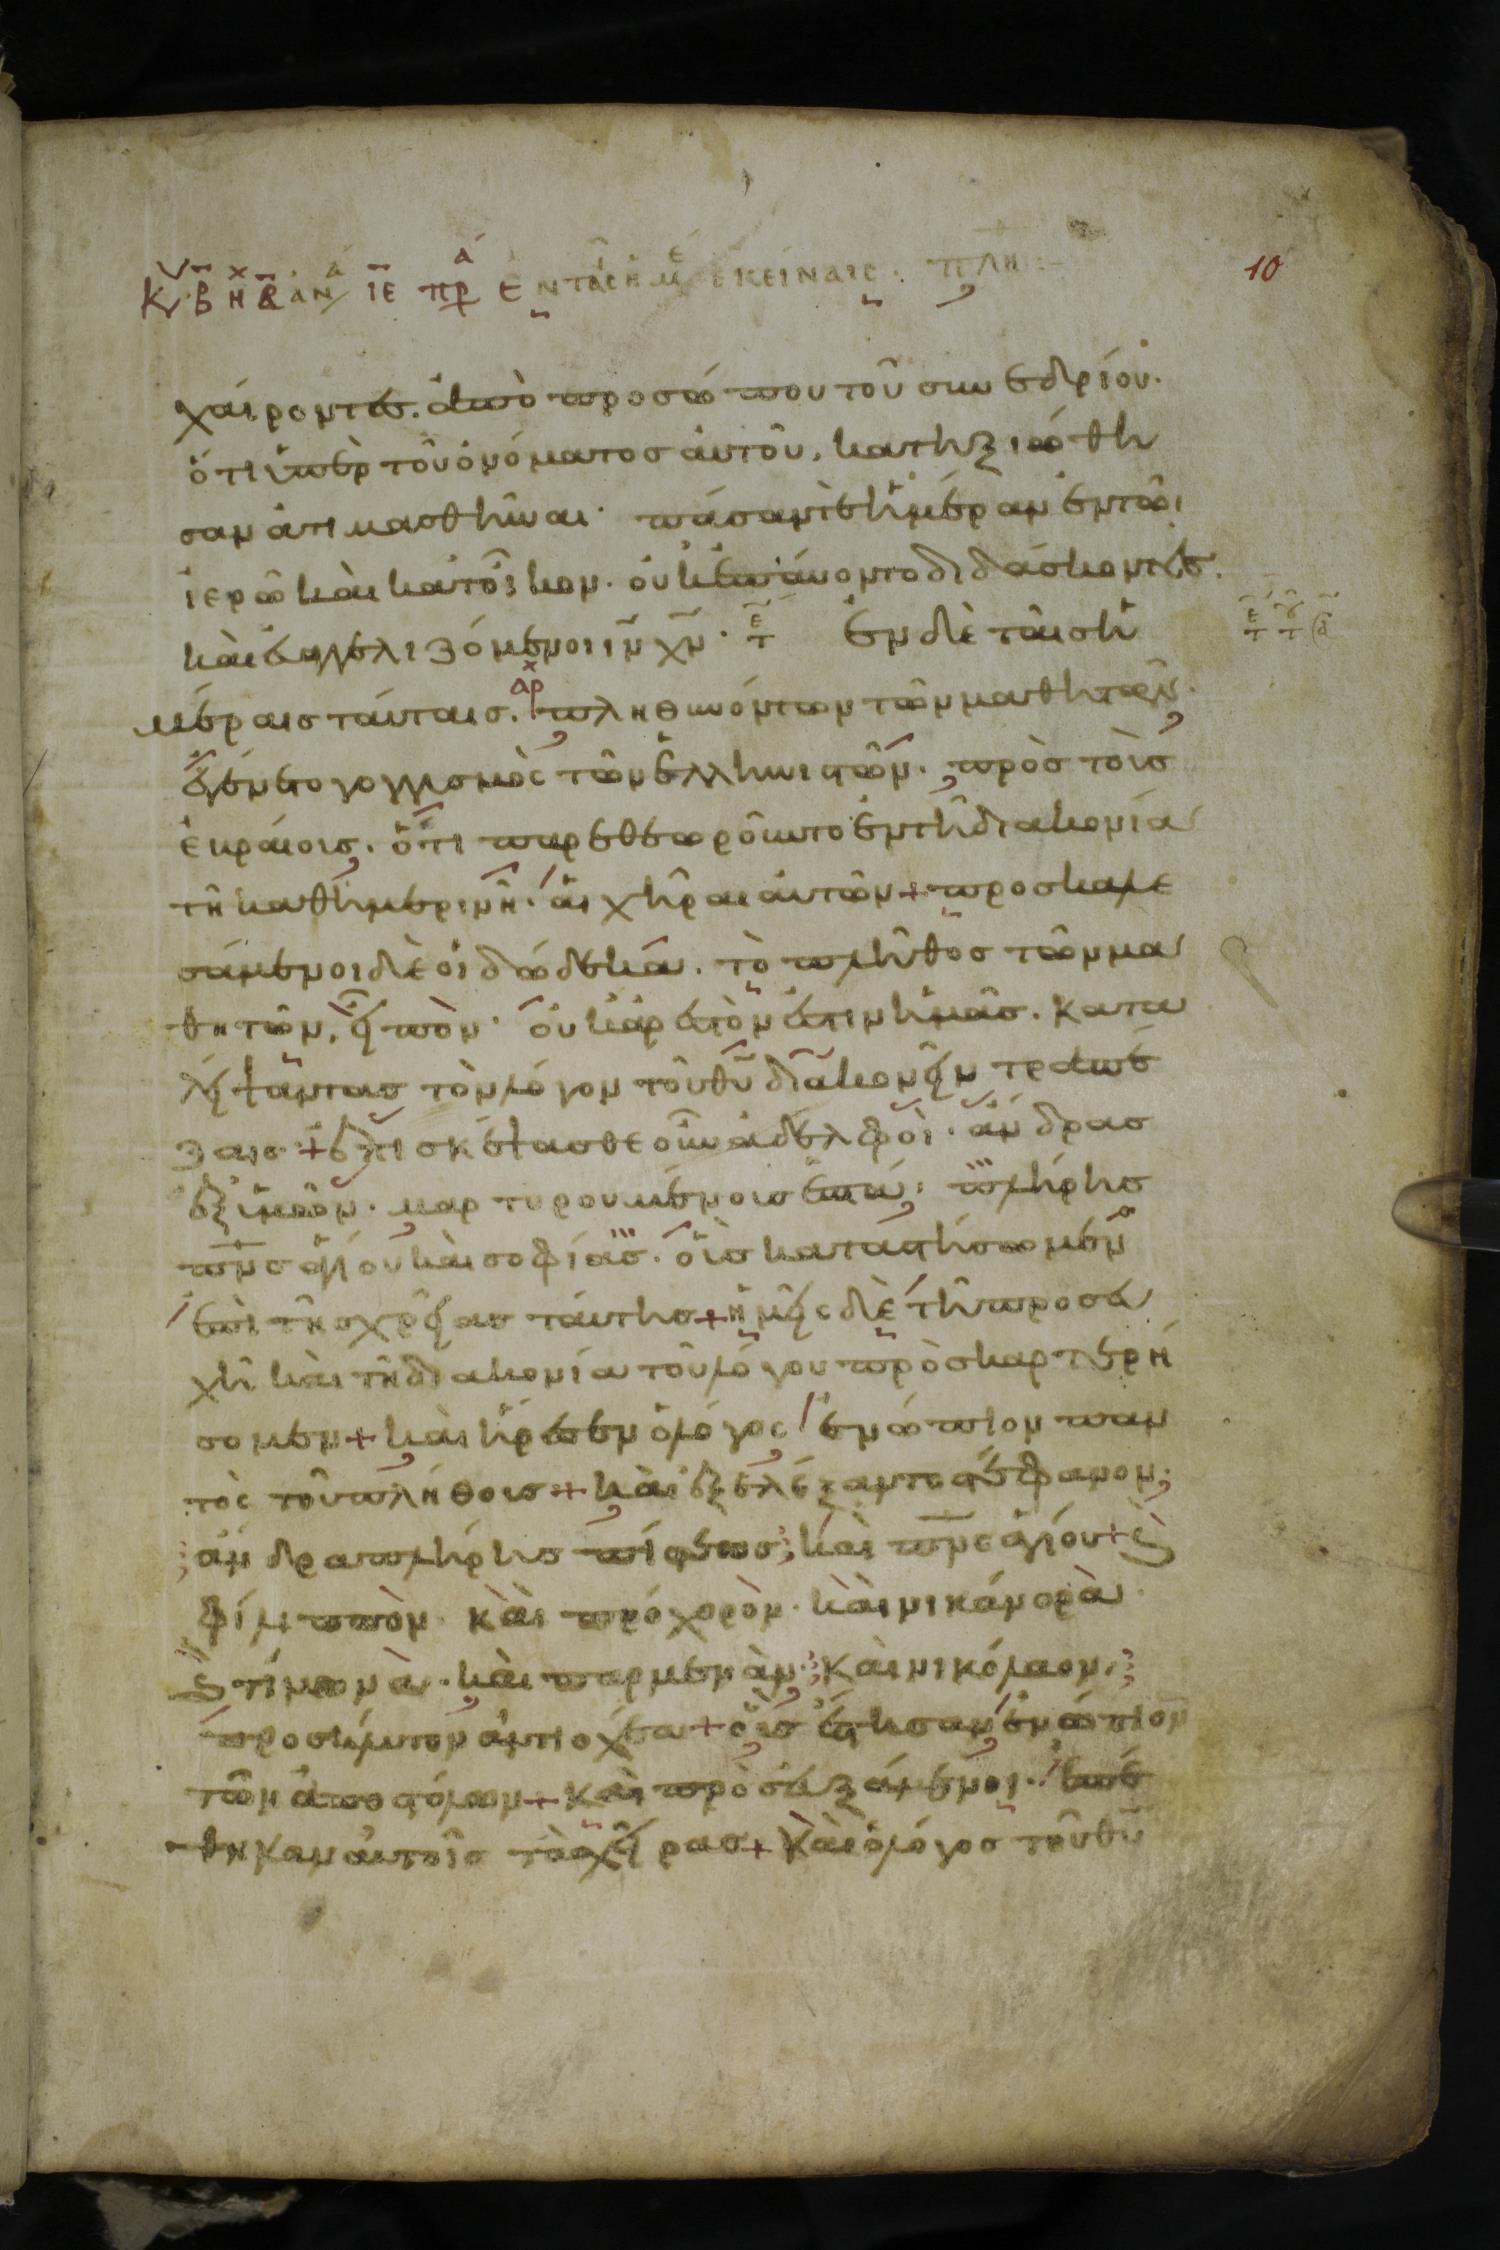 10
χαίροντες. ἀπὸ προσώπου τοῦ συνεδρίου·
ὅτι ὑπὲρ τοῦ ὀνόματος αὐτοῦ. κατηξιώθη
σαν ἀτιμασθῆναι· πᾶσαν τὲ ἡμέραν ἐν τῶι
ἱερῶ καὶ κατοῖκον. οὐκ ἐπαύοντο διδάσκοντες.
καὶ εὐαγγελιζόμενοι ιν χν·
ἐν δὲ ταῖς ἡ
μέραις ταύταις. πληθυνόντων τῶν μαθητῶν.
ἐγένετο γογγυσμὸς τῶν ἑλληνιστῶν. πρὸς τοὺς
ἑβραίους. ὅτι παρεθεωροῦντο ἐν τῆ διακονία
τῆ καθημερινῆ. αἱ χῆραι αὐτῶν + προσκαλε
σάμενοι δὲ οἱ δώδεκα. τὸ πλῆθος τῶν μα
θητῶν, εἶπον· οὐκ ἀρεστόν ἐστιν ἡμᾶς. κατα
λείψαντας τὸν λόγον τοῦ θυ διακονεῖν τραπέ
ζαις + ἐπισκέψασθε οὖν ἀδελφοὶ. ἄνδρας
ἐξ ὑμῶν. μαρτυρουμένους ἑπτὰ. πλήρης
πνς ἁγίου καὶ σοφίας. οὓς καταστήσωμεν
ἐπὶ τῆς χρείας ταύτης + ἡμεῖς δὲ τῆ προσευ
χῆ καὶ τῆ διακονία τοῦ λόγου προσκαρτερή
σομεν + καὶ ἤρεσεν ὁ λόγος ἐνώπιον παν
τὸς τοῦ πλήθους + καὶ ἐξελέξαντο στέφανον.
ἄνδρα πλήρης πίστεως καὶ πνς ἁγίου + καὶ
φίλιππον. καὶ πρόχορον. καὶ νικάνορα
καὶ τίμωνα. καὶ παρμενᾶν. καὶ νικόλαον.
προσήλυτον ἀντιοχέα + οὓς ἔστησαν ἐνώπιον
τῶν ἀποστόλων + καὶ προσευξάμενοι. ἐπέ
θηκαν αὐτοῖς τὰς χεῖρας + καὶ ὁ λόγος τοῦ θυ